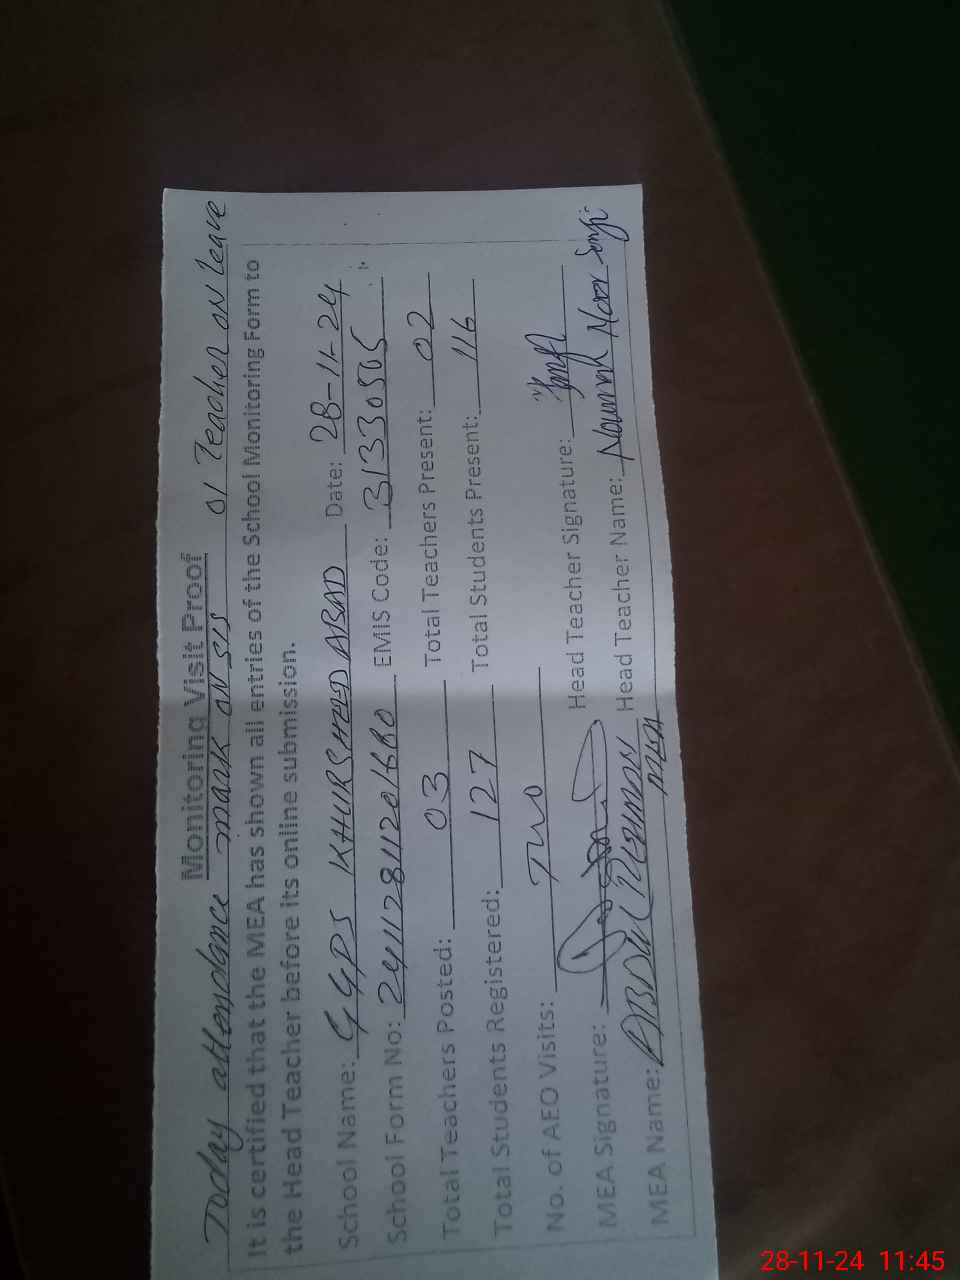 Today attendance mark on SIS 01 Teacher on leave
Monitoring Visit Proof
It is certified that the MEA has shown all entries of the School Monitoring Form to
the Head Teacher before its online submission.
School Name: GGPS KHURSHEED ABAD Date: 28-11-24
School Form No: 241112811201680 EMIS Code: 31330505
Total Teachers Posted: 03 Total Teachers Present: 02
Total Students Registered: 127 Total Students Present: 116
No. of AEO Visits: Two
MEA Signature: Head Teacher Signature:
MEA Name: ABDUL REHMAN Head Teacher Name:
28-11-24 11:45